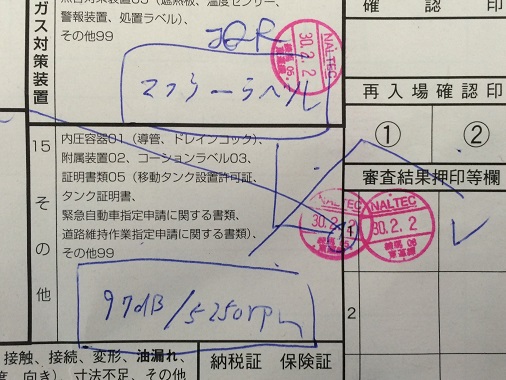 ガス対策装置
警報装置、処置ラベル)、
その他99
JQR
マフラーラベル
NALTEC
30.2.2
確認印
再入場確認印
① ②
15
その他
内圧容器01(導管、ドレインコック)、
附属装置02、コーションラベル03、
証明書類05(移動タンク設置許可証、
タンク証明書、
緊急自動車指定申請に関する書類、
道路維持作業指定申請に関する書類)、
その他99
97dB/5250rpm
審査結果押印等欄
1
30.2.2
NALTEC
30.2.2
2
接触、接続、変形、油漏れ、
度、向き)、寸法不足、その他
納税証 保険証